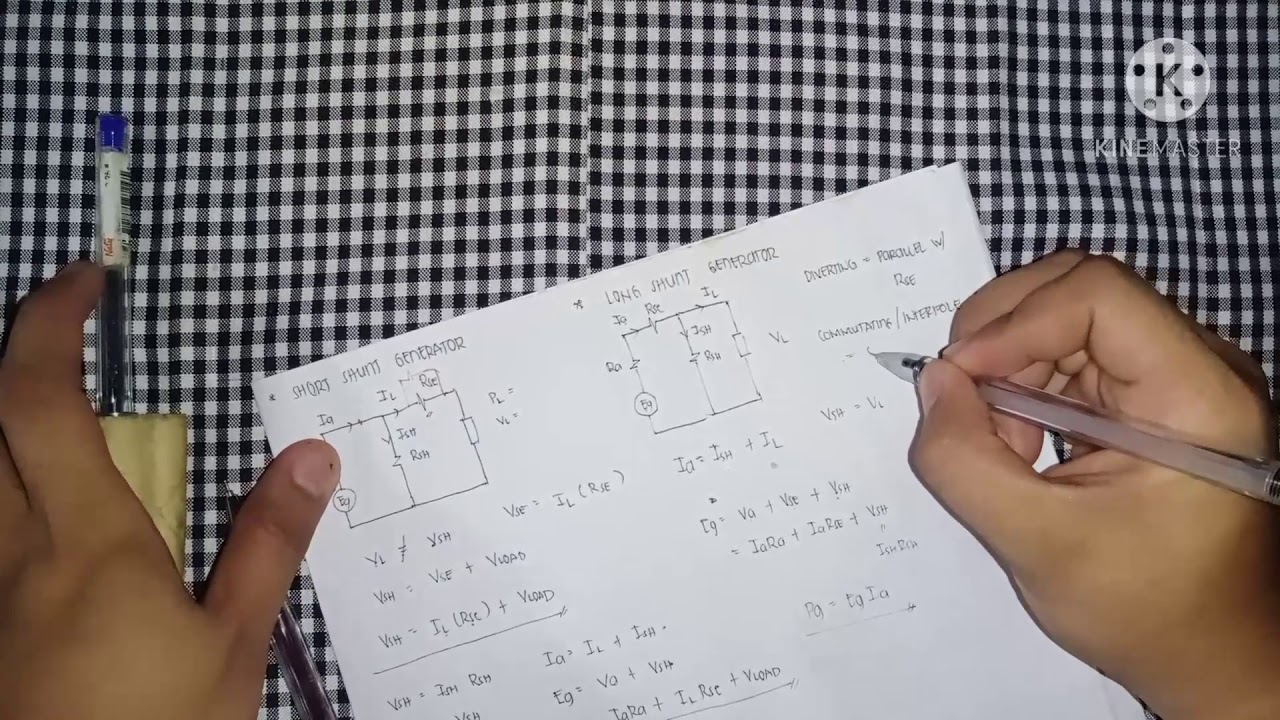 K
KINEMASTER
* SHORT SHUNT GENERATOR
Ia
IL
RSE
ISH
RSH
Eg
PL =
VL =
VSE = IL (RSE)
VL ≠ VSH
VSH = VSE + VLOAD
VSH = IL (RSE) + VLOAD
VSH = ISH RSH
VSH
Ia = IL + ISH
Eg = Va + VSH
IaRa + ILRSE + VLOAD
* LONG SHUNT GENERATOR
Ia
RSE
IL
Ra
ISH
RSH
Eg
VL
Ia = ISH + IL
Eg = Va + VSE + VSH
= IaRa + IaRSE + VSH
ISHRSH
Pg = EgIa
DIVERTING = PARALLEL W/
RSE
COMMUTATING / INTERPOLE
=
VSH = VL